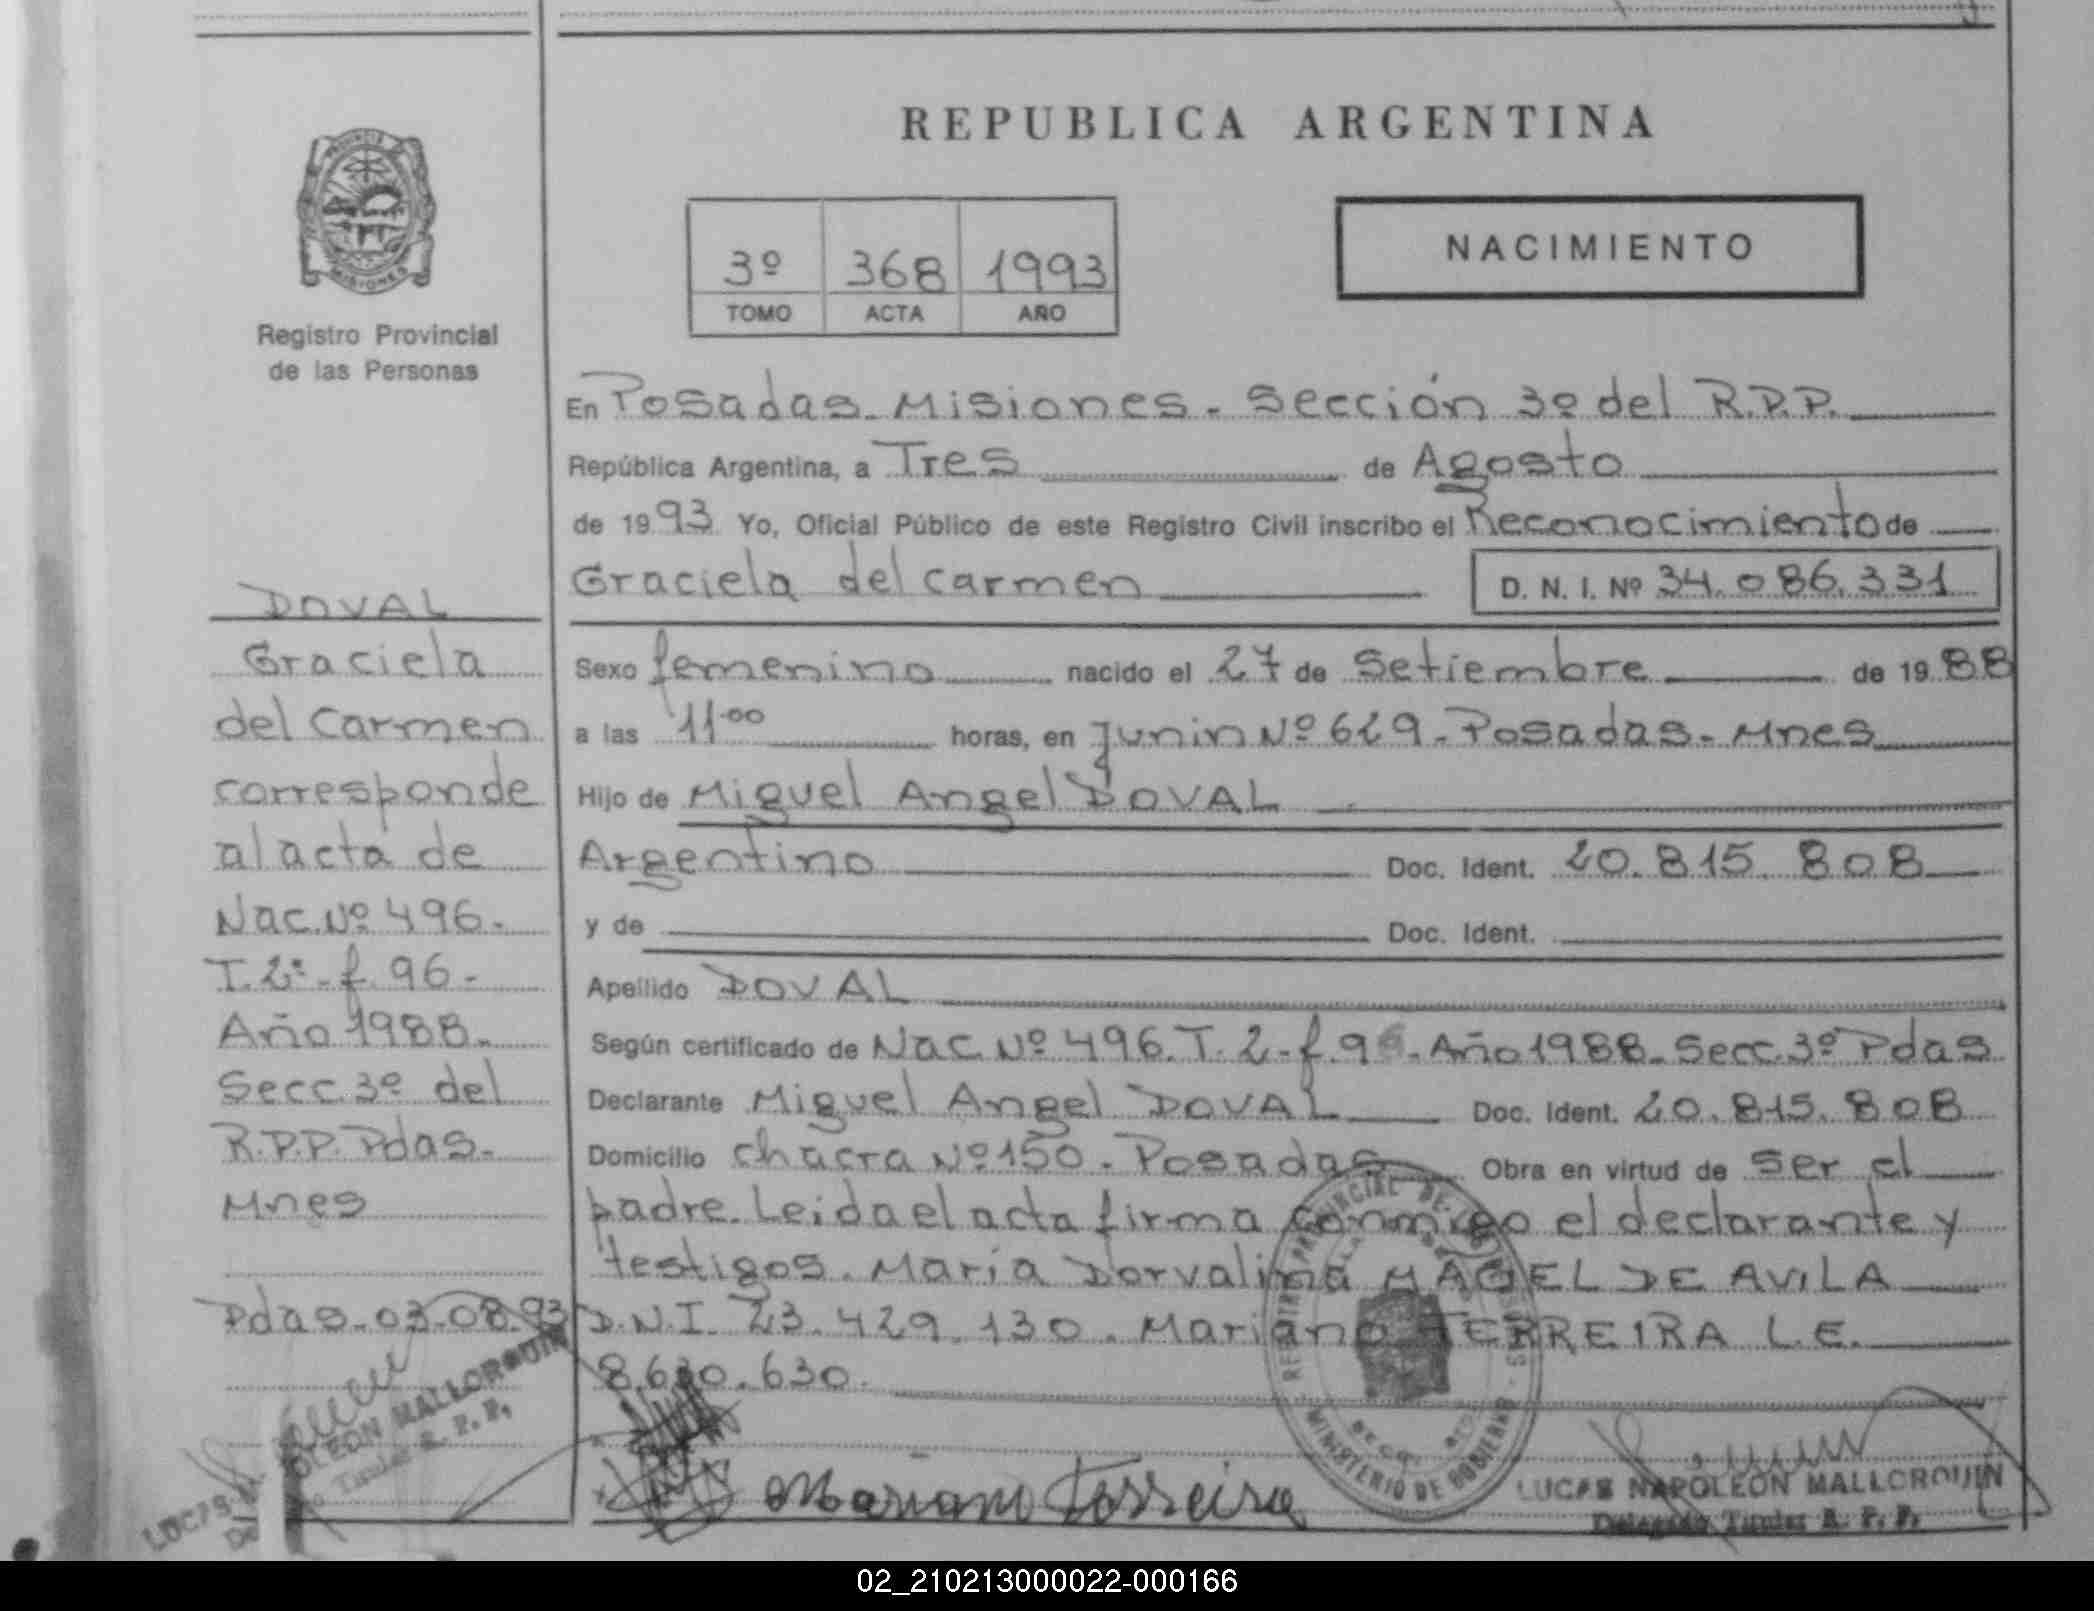 REPUBLICA ARGENTINA
PROVINCIA
MISIONES
Registro Provincial
de las Personas
3º 368 1993
TOMO ACTA AÑO
NACIMIENTO
DOVAL
Graciela
del Carmen
corresponde
al acta de
Nac. Nº 496.
T. 2º - f. 96 -
Año 1988.
Secc. 3º del
R.P.P. Pdas.
Mnes
Pdas. 03-08.93
OLEON MALLORQUIN
Titular R. P. P.
LUCAS
En Posadas. Misiones. Sección 3º del R.P.P.
República Argentina, a Tres de Agosto
de 1993 Yo, Oficial Público de este Registro Civil inscribo el Reconocimiento de
Graciela del Carmen D. N. I. Nº 34.086.331
Sexo femenino nacido el 27 de Setiembre de 1988
a las 11.00 horas, en Junin Nº 629. Posadas. Mnes
Hijo de Miguel Angel DOVAL
Argentino Doc. Ident. 20.815.808
y de Doc. Ident.
Apellido DOVAL
Según certificado de Nac. Nº 496. T. 2 - f. 96. Año 1988. Secc. 3º Pdas
Declarante Miguel Angel DOVAL Doc. Ident. 20.815.808
Domicilio chacra Nº 150. Posadas Obra en virtud de ser el
padre. Leida el acta firma conmigo el declarante y
testigos. María Dorvalina MACIEL DE AVILA
D.N.I. 23.429.130. Mariano FERREIRA L.E.
8.630.630.
Mariano Ferreira
MINISTERIO DE GOBIERNO
LUCAS NAPOLEON MALLORQUIN
Delegado Titular R. P. P.
02_210213000022-000166